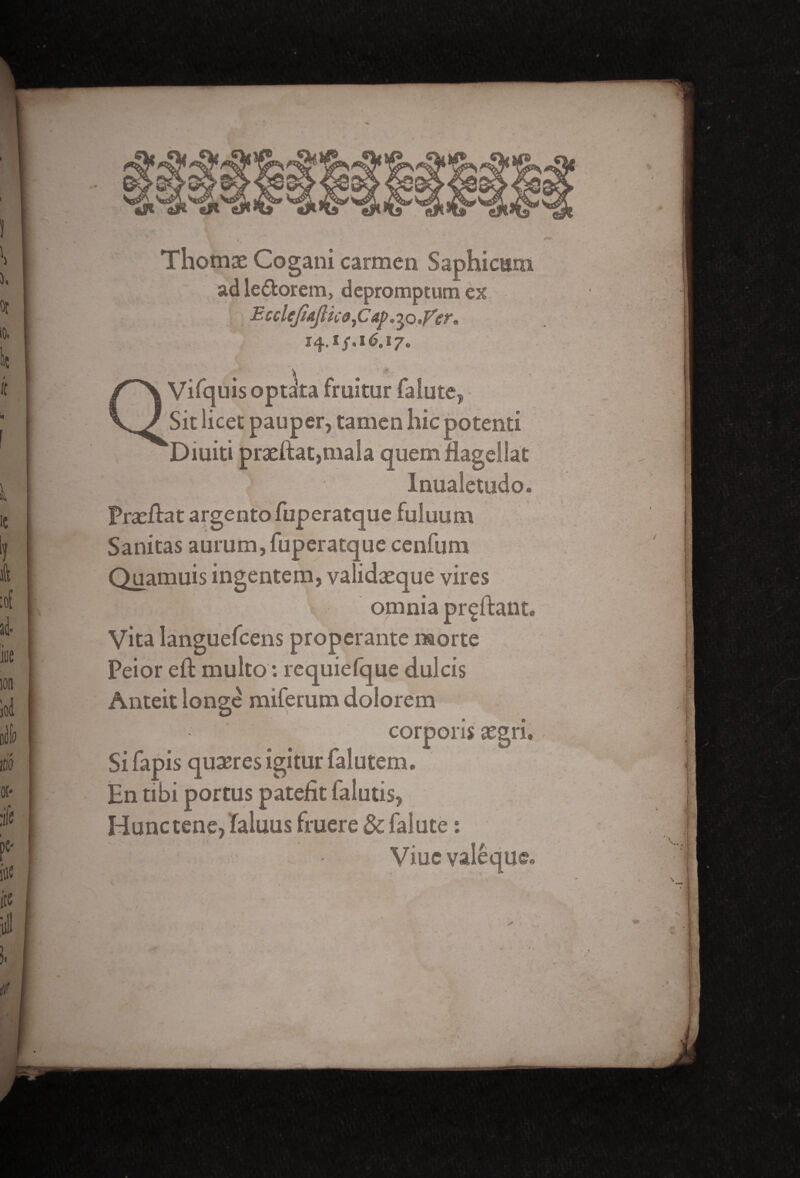 Thomæ Cogani carmen Saphicum
ad lectorem, depromptum ex
Ecclesiastico, Cap.30.Ver.
14.15.16.17.
QVisquis optata fruitur salute,
Sit licet pauper, tamen hic potenti
Diuiti præstat, mala quem flagellat
Inualetudo.
Præstat argento superatque fuluum
Sanitas aurum, superatque censum
Quamuis ingentem, validæque vires
omnia pręstant.
Vita languescens properante morte
Peior est multo: requiesque dulcis
Anteit longè miserum dolorem
corporis ægri.
Si sapis quæres igitur salutem.
En tibi portus patefit salutis,
Hunc tene, saluus fruere & salute:
Viue valéque.